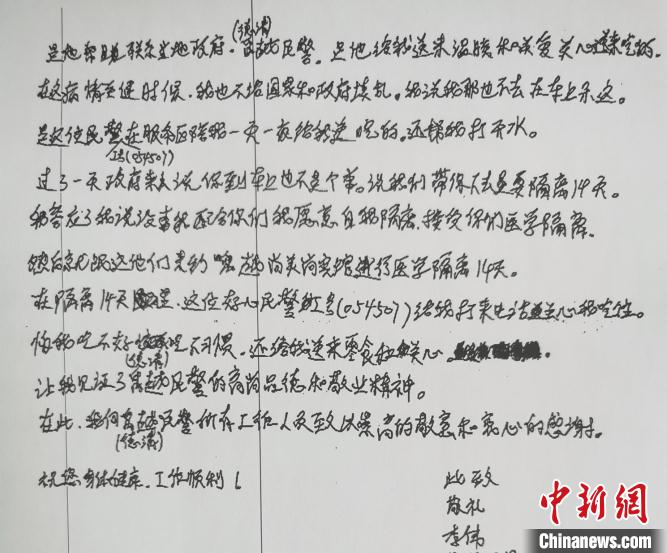 (德清)
是他帮且联系当地政府.高越民警.是他给我送来温暖和关爱关心送来吃的.
在这病情关健时候.我也不给国家和政府填乱.我说我那也不去在车上示这。
是这位民警在服务区陪我一天一夜给我送吃的.还帮我打开水。
工号(054507)
过了一天政府来去说你到车上也不是个事.说我们带你下去是要隔离14天.
我答应了我说没事我配合你们我愿意自我隔离.接受你们医学隔离.
然后就跟这他们来到 尚美尚宾馆进行医学隔离14天.
在隔离14天里.这位好心民警 工号(054507)给我打来电话关心我吃住.
怕我吃不好 吃不习惯.还给我送来零食和关心.
(德清)
让我见证了高越民警的高尚品德和敬业精神.
在此.我向高越民警所有工作人员致以崇高的敬意和衷心的感谢.
(德清)
祝您身体健康.工作顺利!
此致
敬礼
李伟
中新网
Chinanews.com